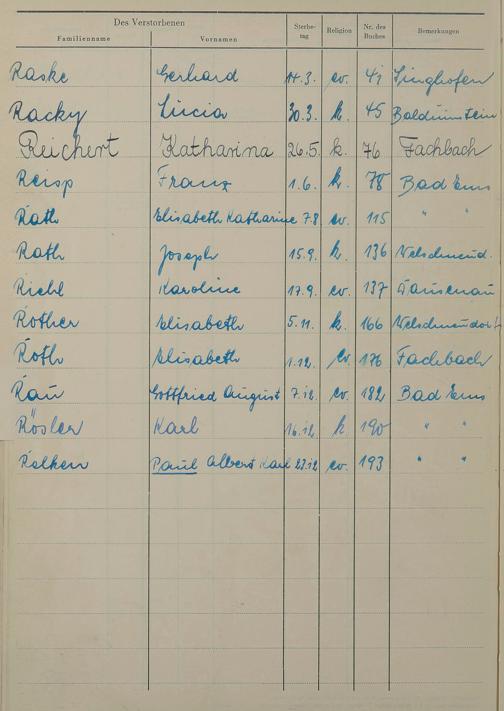 Des Verstorbenen
Familienname Vornamen Sterbe-tag Religion Nr. des Buches Bemerkungen
Raske Gerhard 14.3. ev. 41 Singhofen
Racky Lucia 30.3. k. 45 Balduinstein
Reichert Katharina 26.5. k. 76 Fachbach
Reisp Franz 1.6. k. 78 Bad Ems
Rath Elisabeth Katharine 7.8 ev. 115 " "
Rath Joseph 15.9. k. 136 Welschneud.
Riehl Karoline 17.9. ev. 137 Dausenau
Rother Elisabeth 5.11. k. 166 Welschneudorf
Roth Elisabeth 1.12. ev. 176 Fachbach
Rau Gottfried August 7.12. ev. 182 Bad Ems
Rösler Karl 16.12. k 190 " "
Relken Paul Albert Karl 23.12 ev. 193 " "